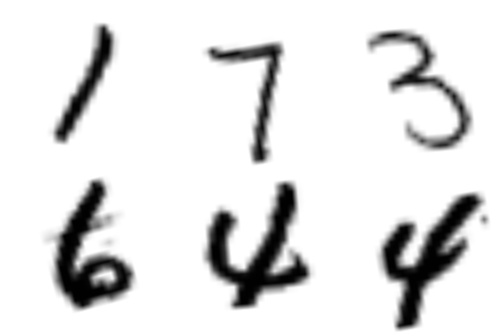 1 7 3
6 4 4